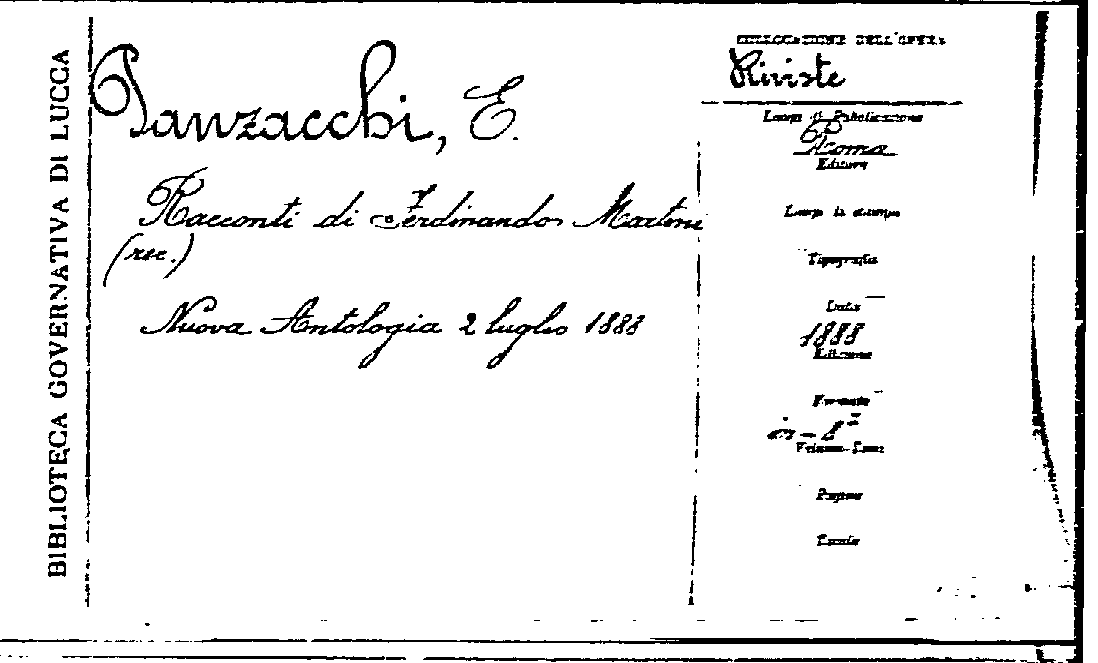 BIBLIOTECA GOVERNATIVA DI LUCCA
Panzacchi, E.
Racconti di Ferdinando Martini
(rec.)
Nuova Antologia 2 luglio 1888
COLLOCAZIONE DELL'OPERA
Riviste
Luogo di Pubblicazione
Roma
Editore
Luogo di stampa
Tipografia
Data
1888
Edizione
Formato
in-8º
Volumi-Tomi
Pagine
Tavole